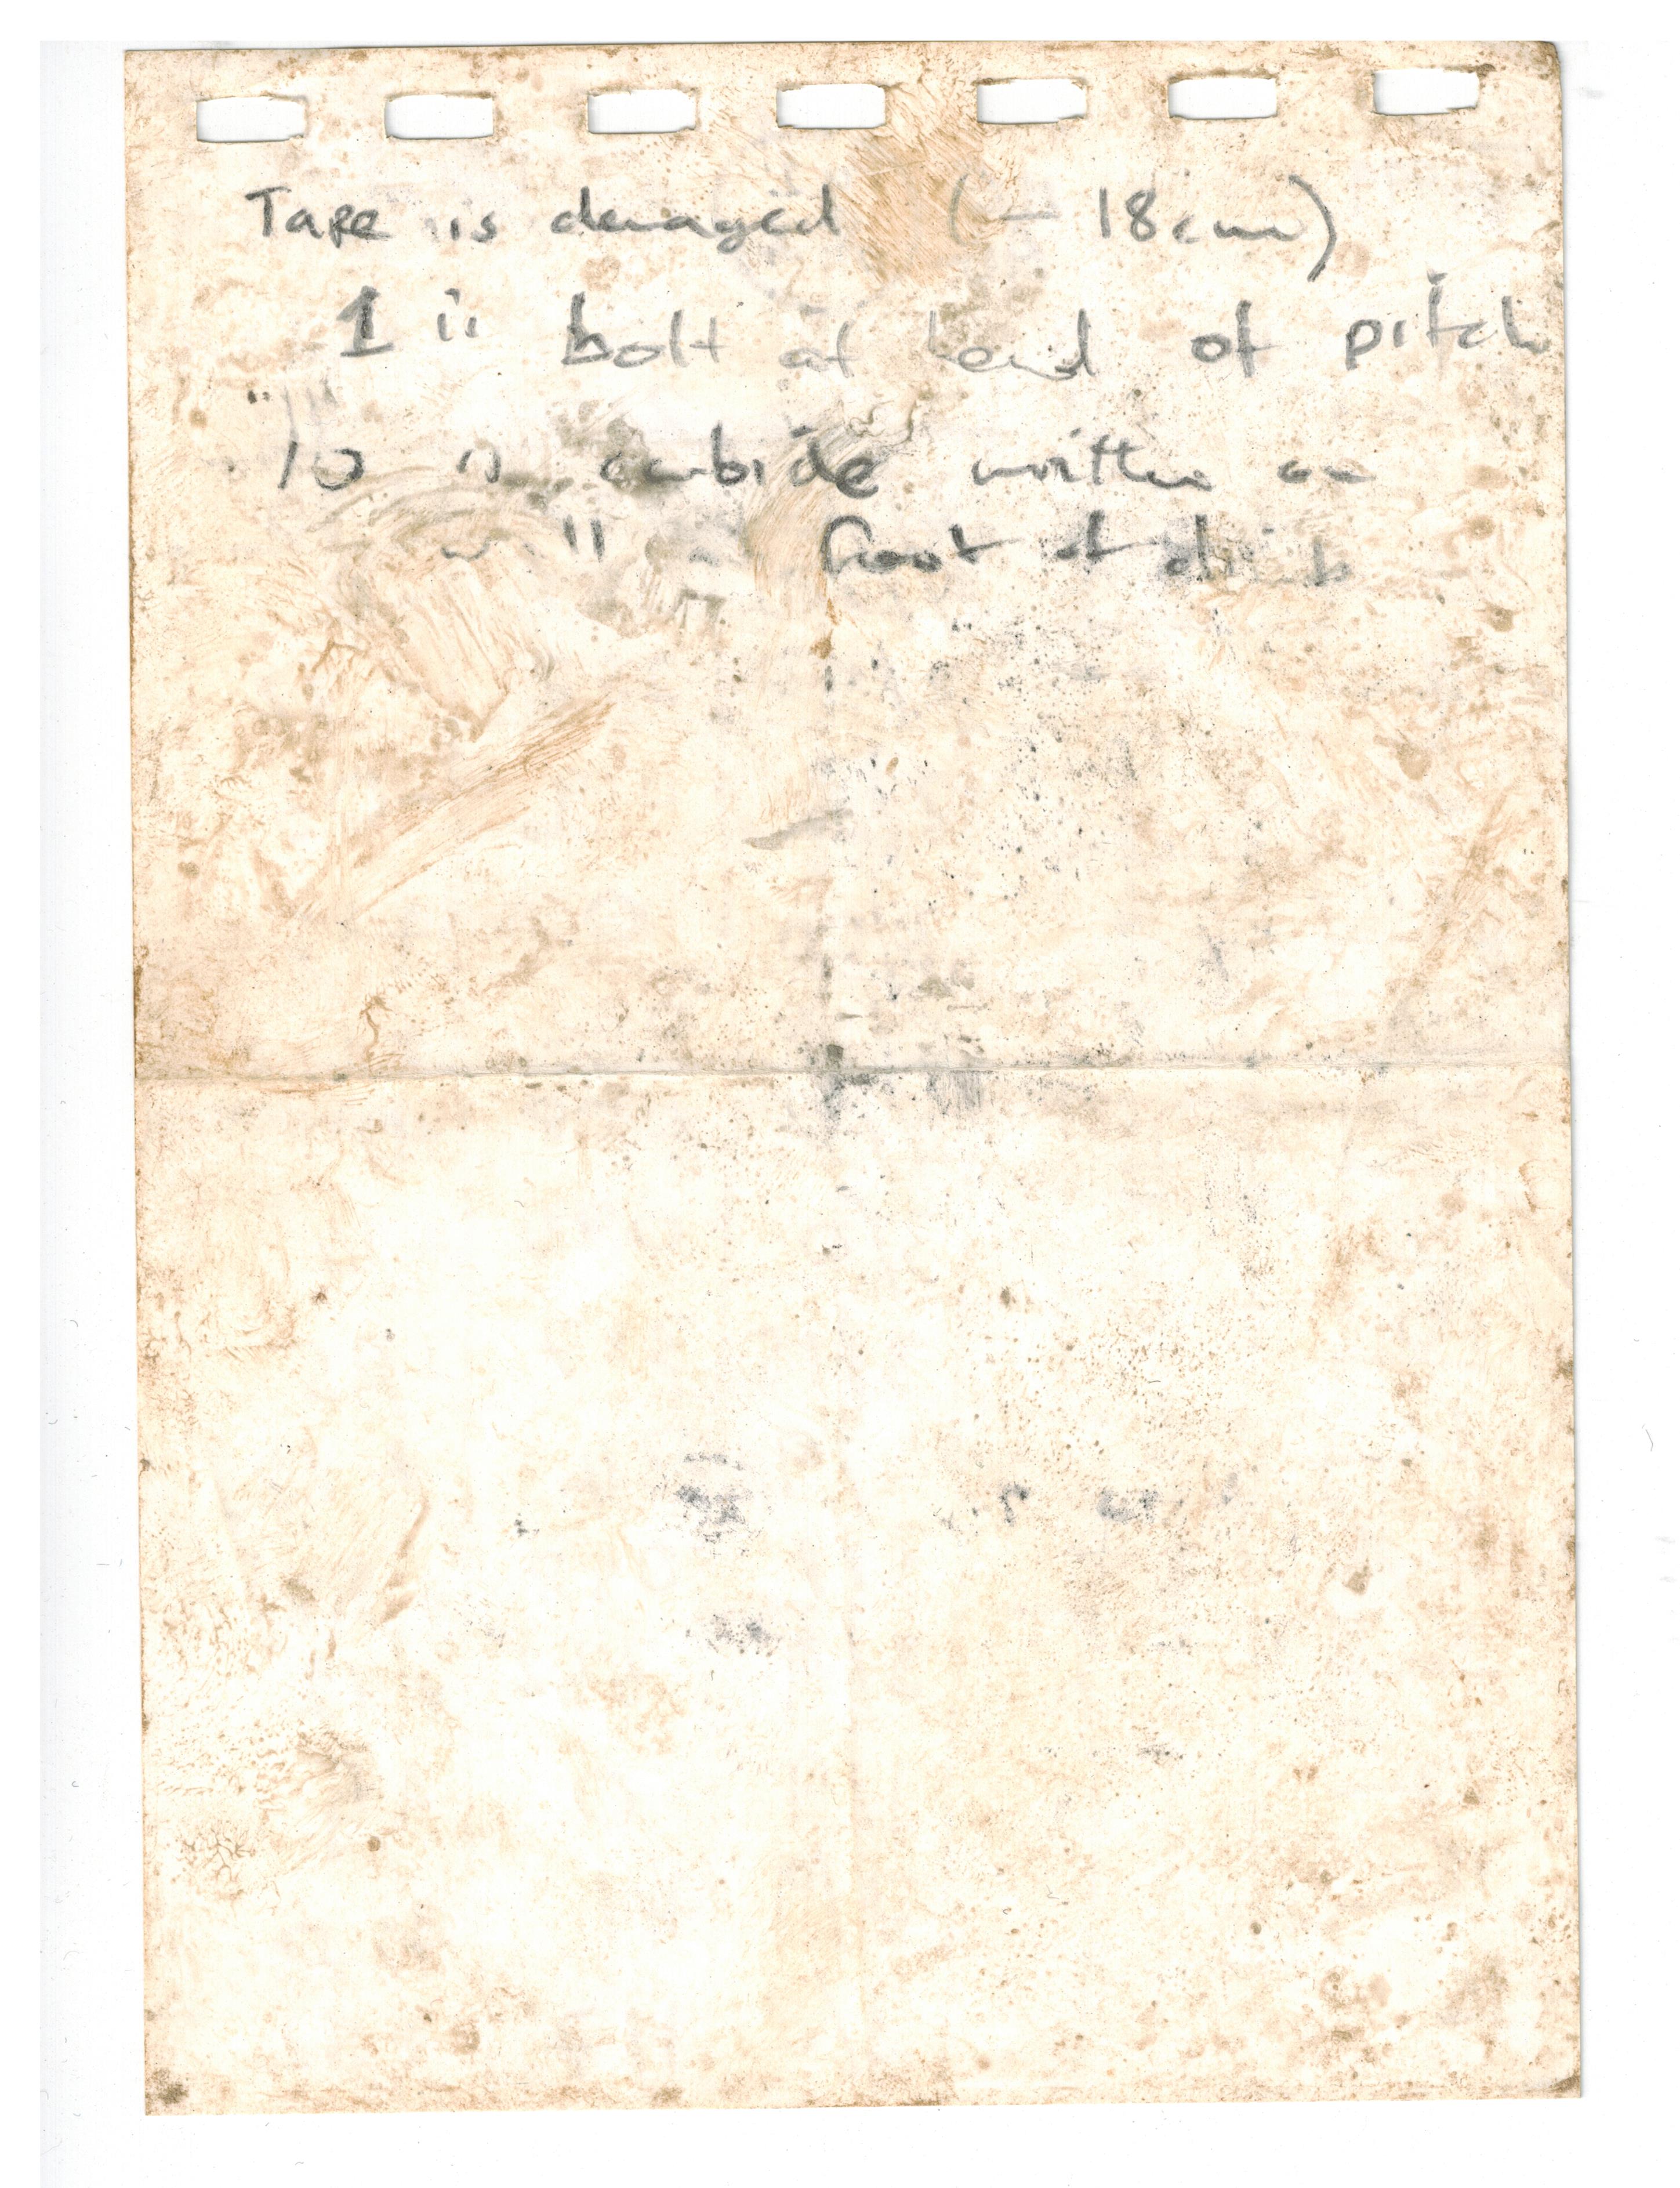 Tape is damaged (- 18cm)
1 is bolt at head of pitch
10 is carbide written on
wall foot of climb